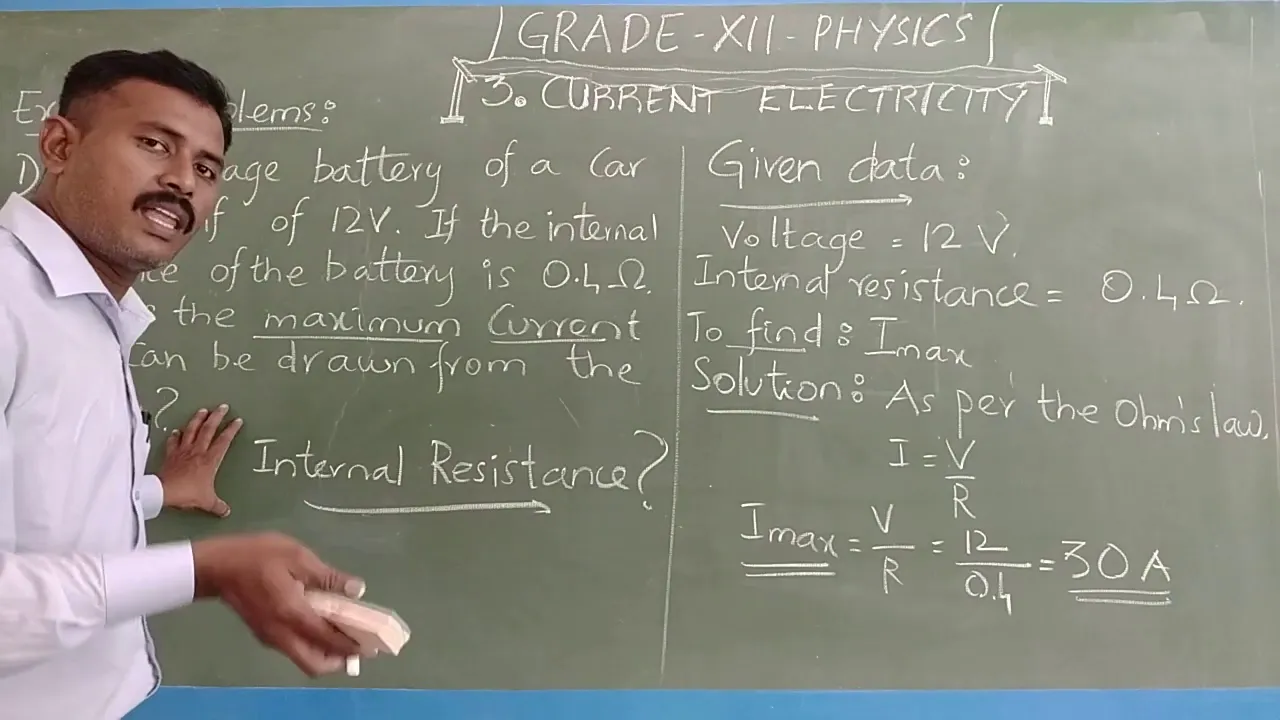 GRADE-XII-PHYSICS
3. CURRENT ELECTRICITY
lems:
age battery of a Car
f of 12V. If the internal
ce of the battery is 0.4Ω.
the maximum Current
Can be drawn from the
?
Internal Resistance?
Given data:
Voltage = 12 V.
Internal resistance = 0.4Ω.
To find: Imax
Solution: As per the Ohm's law,
I = V/R
Imax = V/R = 12/0.4 = 30A